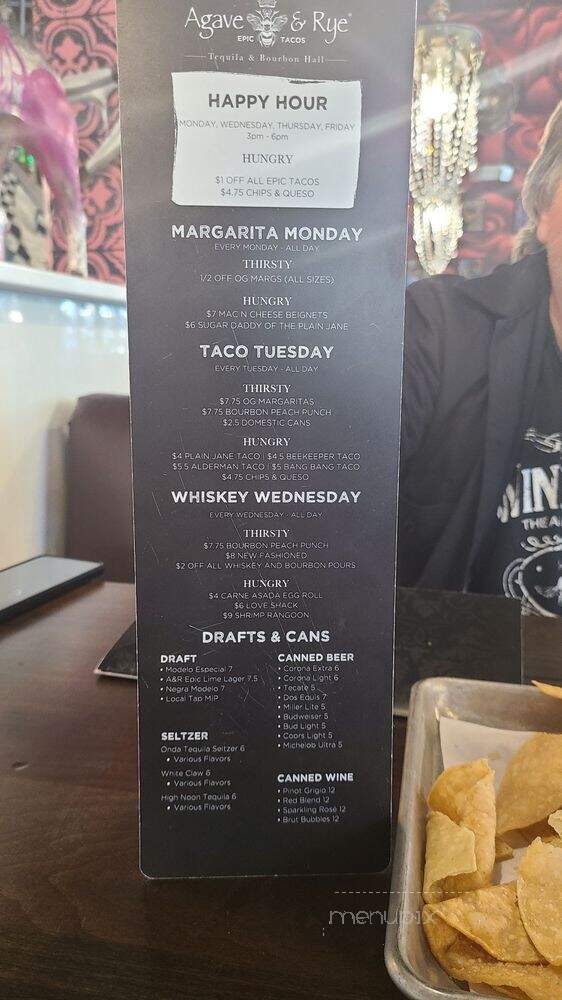 Agave & Rye
EPIC TACOS
Tequila & Bourbon Hall
HAPPY HOUR
MONDAY, WEDNESDAY, THURSDAY, FRIDAY
3pm - 6pm
HUNGRY
$1 OFF ALL EPIC TACOS
$4.75 CHIPS & QUESO
MARGARITA MONDAY
EVERY MONDAY - ALL DAY
THIRSTY
1/2 OFF OG MARGS (ALL SIZES)
HUNGRY
$7 MAC N CHEESE BEIGNETS
$6 SUGAR DADDY OF THE PLAIN JANE
TACO TUESDAY
EVERY TUESDAY - ALL DAY
THIRSTY
$7.75 OG MARGARITAS
$7.75 BOURBON PEACH PUNCH
$2.5 DOMESTIC CANS
HUNGRY
$4 PLAIN JANE TACO | $4.5 BEEKEEPER TACO
$5.5 ALDERMAN TACO | $5 BANG BANG TACO
$4.75 CHIPS & QUESO
WHISKEY WEDNESDAY
EVERY WEDNESDAY - ALL DAY
THIRSTY
$7.75 BOURBON PEACH PUNCH
$8 NEW FASHIONED
$2 OFF ALL WHISKEY AND BOURBON POURS
HUNGRY
$4 CARNE ASADA EGG ROLL
$6 LOVE SHACK
$9 SHRIMP RANGOON
DRAFTS & CANS
DRAFT
• Modelo Especial 7
• A&R Epic Lime Lager 7.5
• Negra Modelo 7
• Local Tap MP
SELTZER
Onda Tequila Seltzer 6
• Various Flavors
White Claw 6
• Various Flavors
High Noon Tequila 6
• Various Flavors
CANNED BEER
• Corona Extra 6
• Corona Light 6
• Tecate 5
• Dos Equis 7
• Miller Lite 5
• Budweiser 5
• Bud Light 5
• Coors Light 5
• Michelob Ultra 5
CANNED WINE
• Pinot Grigio 12
• Red Blend 12
• Sparkling Rosé 12
• Brut Bubbles 12
THE
menupix